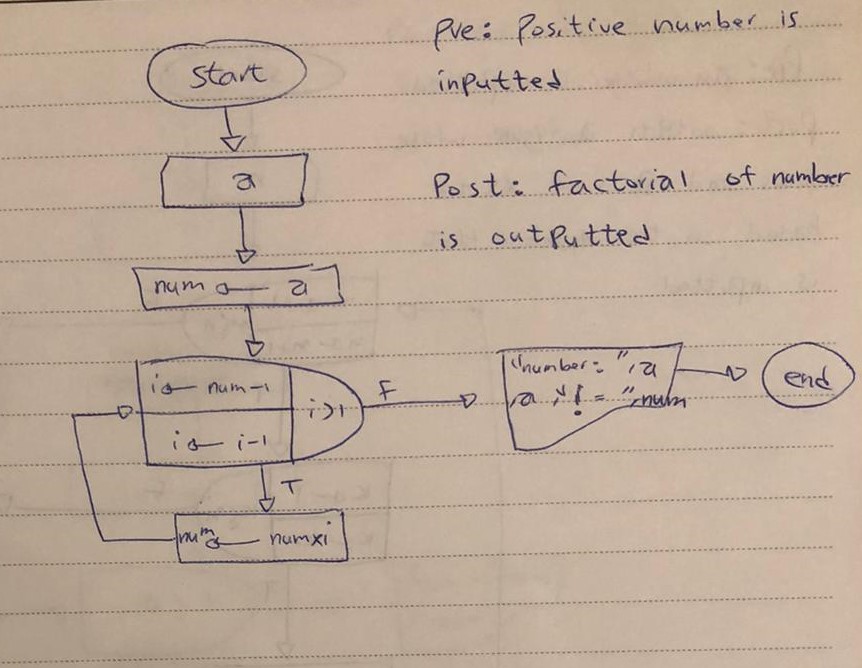 Pre: Positive number is
inputted
Post: factorial of number
is outputted
start
a
num ← a
i ← num-1
i ← i-1
i>1
F
T
num ← numxi
"number: ", a
,a "! = ", num
end